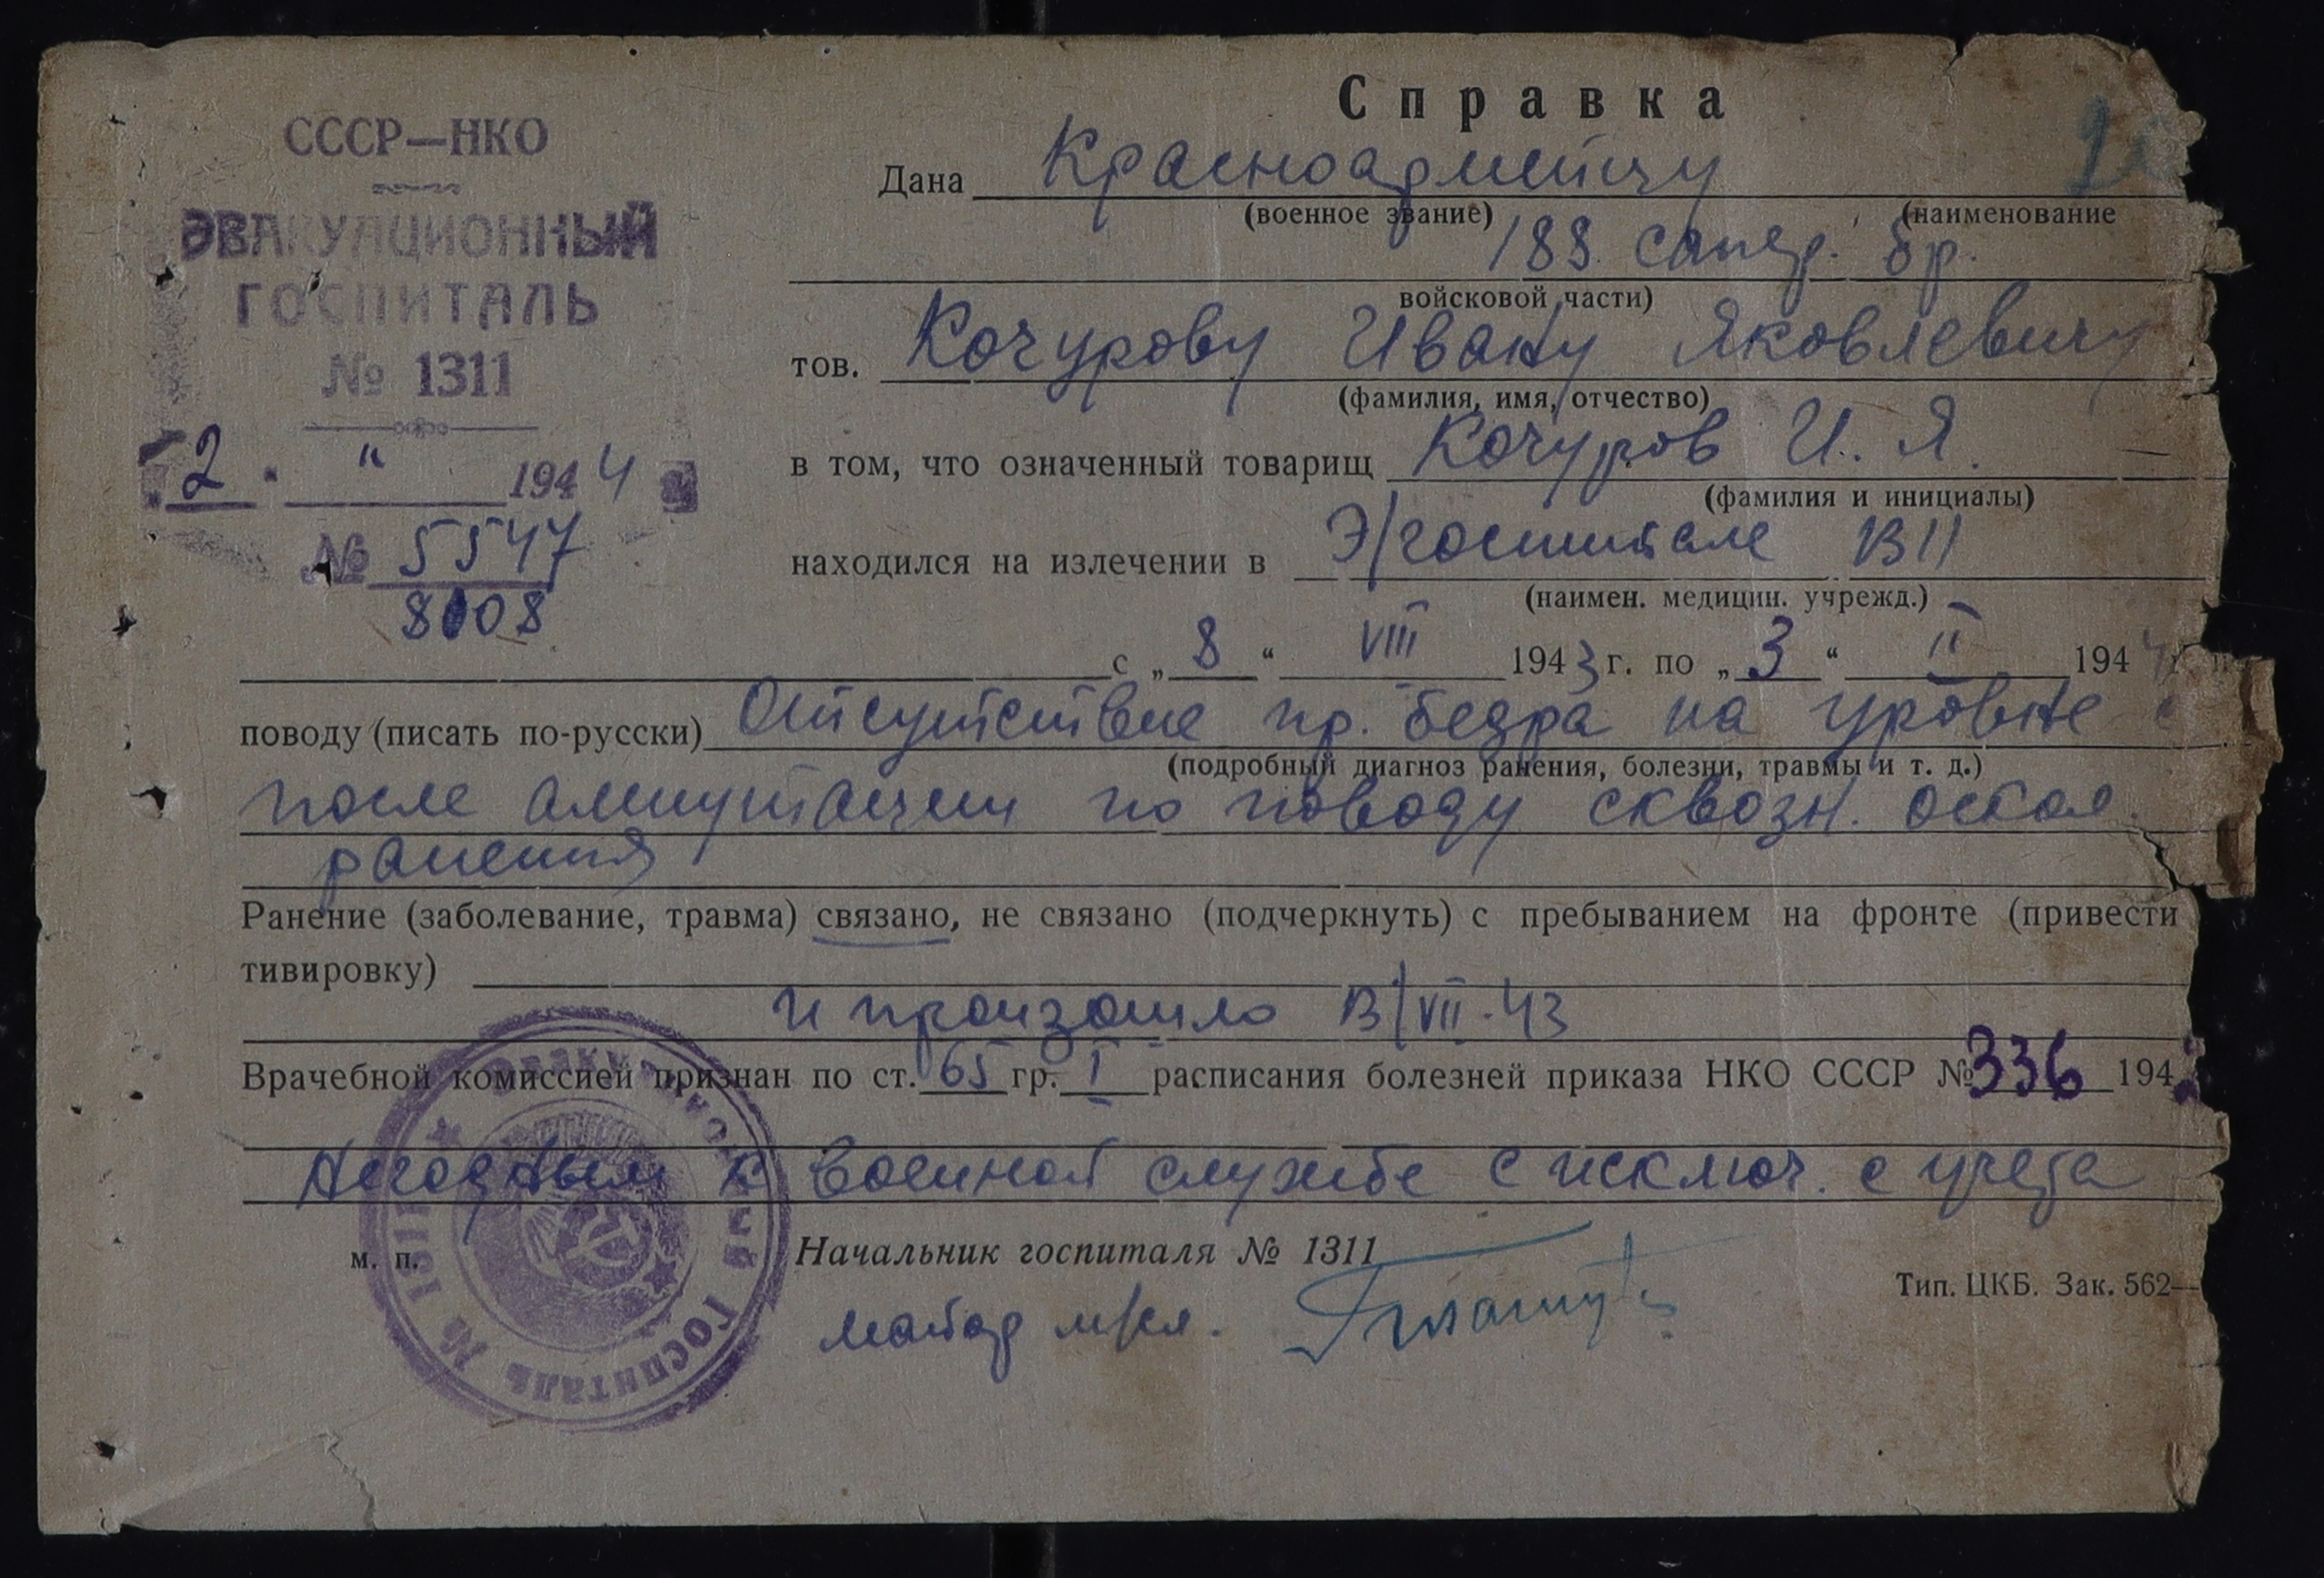 СССР—НКО
ЭВАКУАЦИОННЫЙ
ГОСПИТАЛЬ
№ 1311
2 " 1944
№ 5547
8108
Справка
Дана Красноармейцу
(военное звание) (наименование
188 сапер. бр.
войсковой части)
тов. Кочурову Ивану Яковлевичу
(фамилия, имя, отчество)
в том, что означенный товарищ Кочуров И. Я.
(фамилия и инициалы)
находился на излечении в Э/госпитале 1311
(наимен. медицин. учрежд.)
с „8“ VIII 1943 г. по „3“ II 1944
поводу (писать по-русски) Отсутствие пр. бедра на уровне с
(подробный диагноз ранения, болезни, травмы и т. д.)
после ампутации по поводу сквозн. оскол.
ранения
Ранение (заболевание, травма) связано, не связано (подчеркнуть) с пребыванием на фронте (привести
тивировку)
и произошло 13/VII-43
Врачебной комиссией признан по ст. 65 гр. I расписания болезней приказа НКО СССР № 336 194
Негодным к военной службе с исключ. с учета
м. п.
Начальник госпиталя № 1311
майор м/сл.
Тип. ЦКБ. Зак. 562—
Эвакуационный госпиталь № 1311